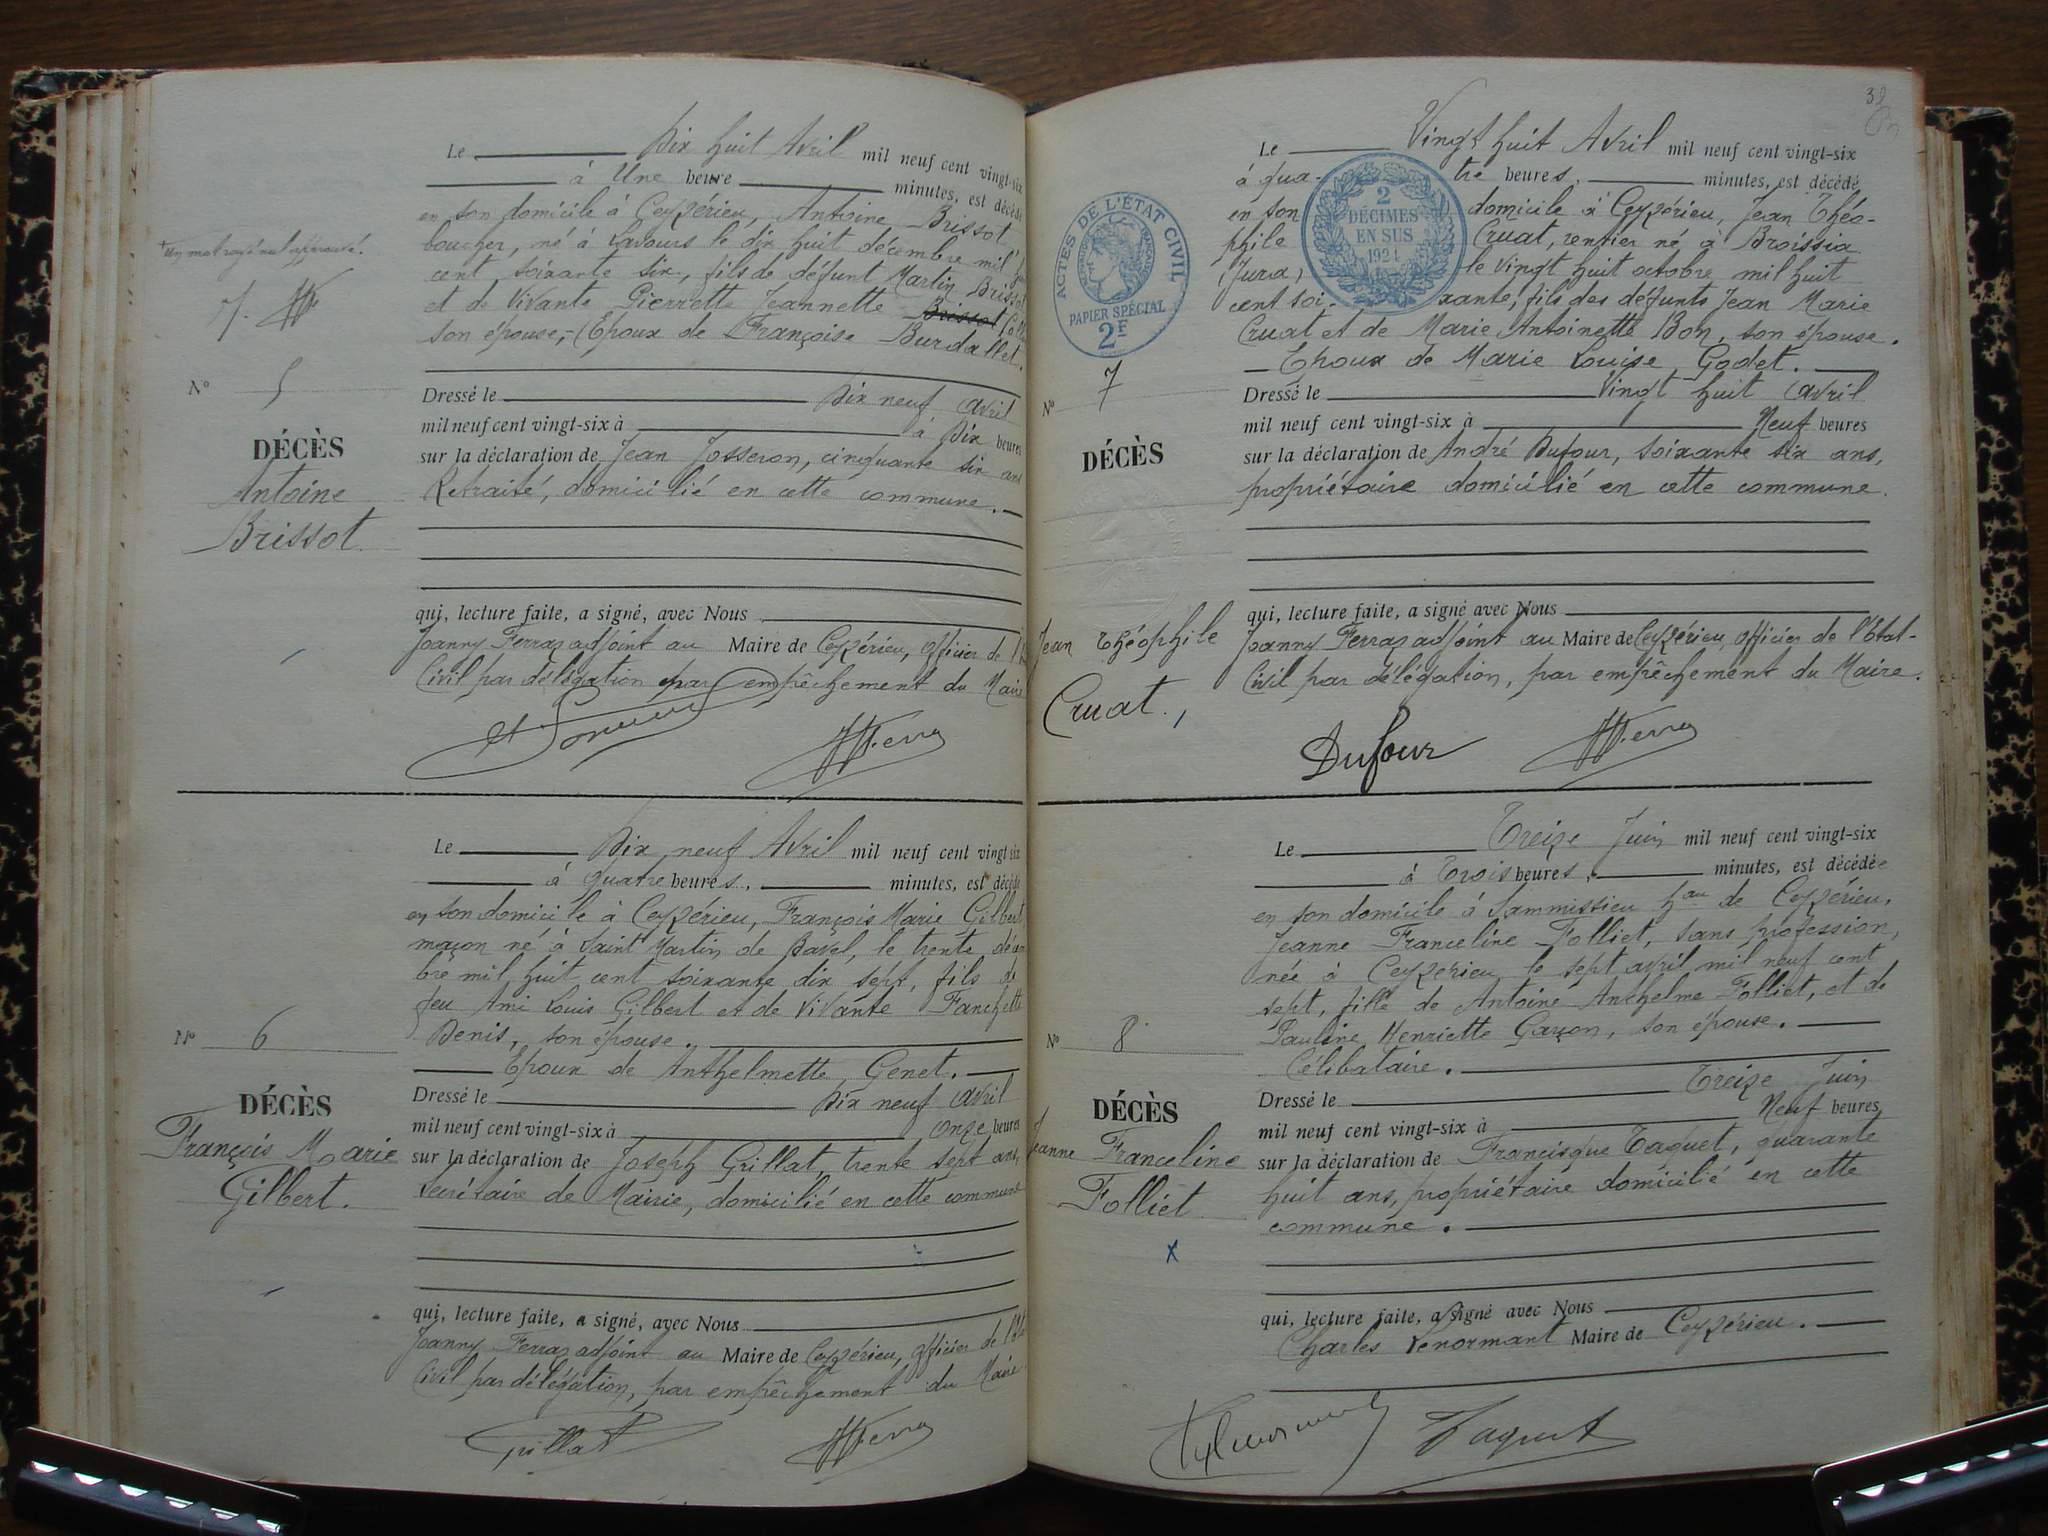 Le Dix huit Avril mil neuf cent vingt-six
à Une heure minutes, est décédé
en son domicile à Ceyzérieu, Antoine Brissot,
boucher, né à Lavours le dix huit décembre mil
cent soixante six, fils de défunt Martin Brissot
et de vivante Pierrette Jeannette Brissot
son épouse,- Epoux de Françoise Burdallet.
Un mot rayé nul approuvé.
N° 5
DÉCÈS
Antoine
Brissot
Dressé le Dix neuf avril
mil neuf cent vingt-six à à Dix heures
sur la déclaration de Jean Josseron, cinquante six ans
Retraité, domicilié en cette commune.
qui, lecture faite, a signé, avec Nous
Joanny Ferraz adjoint au Maire de Ceyzérieu, officier de
Civil par délégation par empêchement du Maire
Le Dix neuf Avril mil neuf cent vingt six
à quatre heures, minutes, est décédé
en son domicile à Ceyzérieu, François Marie Gilbert,
maçon né à Saint Martin de Bavel, le trente décem
bre mil huit cent soixante dix sept, fils de
feu Ami Louis Gilbert et de vivante Fanchette
Denis, son épouse.
Epoux de Anthelmette Genet.
N° 6
DÉCÈS
François Marie
Gilbert.
Dressé le Dix neuf avril
mil neuf cent vingt-six à onze heures
sur la déclaration de Joseph Grillat, trente sept ans,
Secrétaire de Mairie, domicilié en cette commune
qui, lecture faite, a signé, avec Nous
Joanny Ferraz adjoint au Maire de Ceyzérieu, officier de
Civil par délégation, par empêchement du Maire
Grillat
Ferra
Le Vingt huit Avril mil neuf cent vingt-six
à qua- tre heures, minutes, est décédé
en son domicile à Ceyzérieu, Jean Théo-
phile Cruat, rentier né à Broissia
(Jura) le vingt huit octobre mil huit
cent soi- xante, fils des défunts Jean Marie
Cruat et de Marie Antoinette Bon, son épouse.
Epoux de Marie Louise Godet.
ACTES DE L'ÉTAT CIVIL
PAPIER SPÉCIAL
2F
2
DÉCIMES
EN SUS
1924
N° 7
DÉCÈS
Jean Théophile
Cruat.
Dressé le vingt huit avril
mil neuf cent vingt-six à Neuf heures
sur la déclaration de André Dufour, soixante six ans,
propriétaire domicilié en cette commune.
qui, lecture faite, a signé avec Nous
Joanny Ferraz adjoint au Maire de Ceyzérieu, officier de l'Etat-
Civil par délégation, par empêchement du Maire.
Dufour
Ferra
Le Treize Juin mil neuf cent vingt-six
à Trois heures, minutes, est décédée
en son domicile à Sammissieu hau de Ceyzérieu,
Jeanne Franceline Folliet, sans profession,
née à Ceyzerieu le sept avril mil neuf cent
sept, fille de Antoine Anthelme Folliet, et de
Pauline Henriette Garçon, son épouse.
Célibataire.
N° 8
DÉCÈS
Jeanne Franceline
Folliet
Dressé le Treize Juin
mil neuf cent vingt-six à Neuf heures
sur la déclaration de Francisque Taquet, quarante
huit ans, propriétaire domicilié en cette
commune.
qui, lecture faite, a signé avec Nous
Charles Lenormant Maire de Ceyzérieu.
Taquet